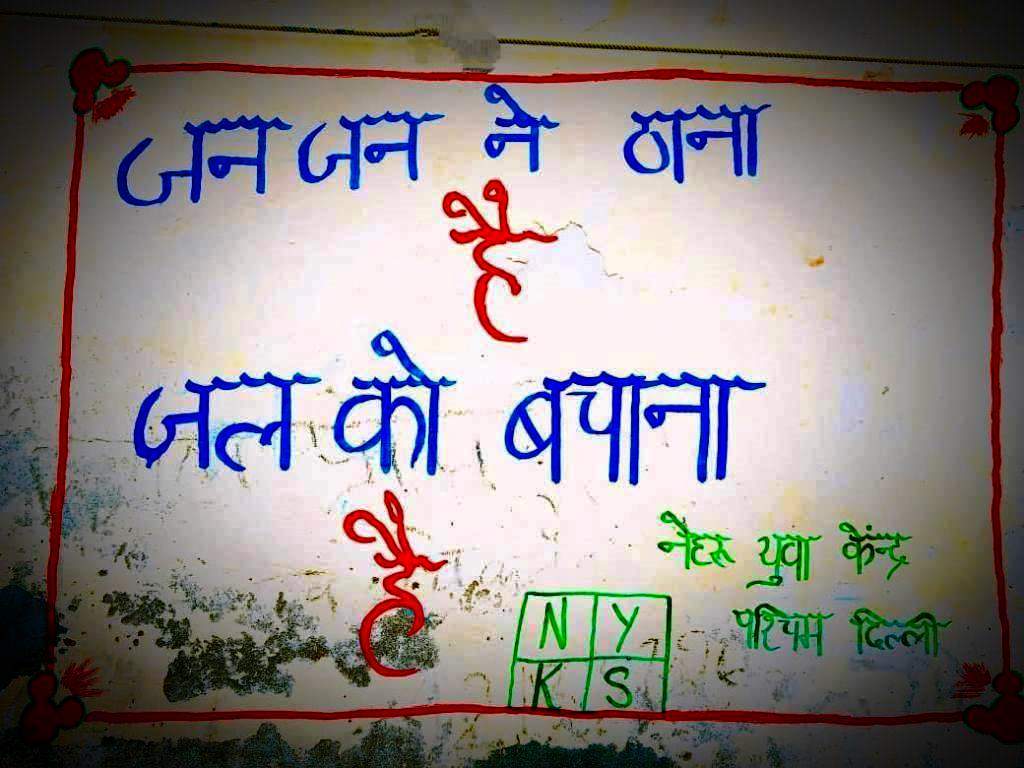 जन जन ने ठाना
है
जल को बचाना
है
नेहरू युवा केंन्द्र
पश्चिम दिल्ली
N Y
K S